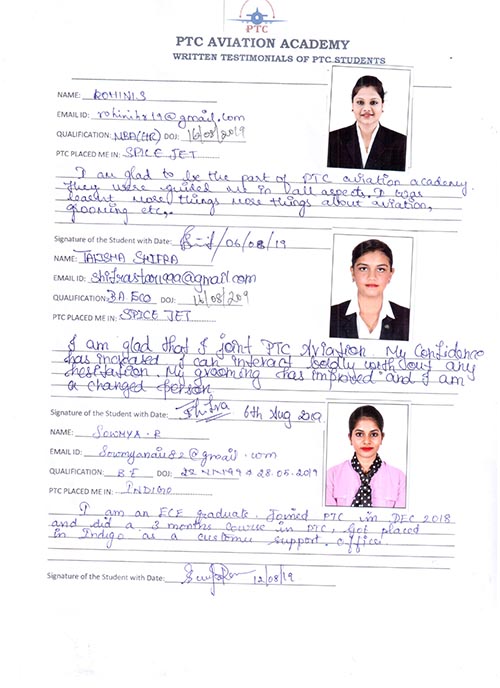 PTC
PTC AVIATION ACADEMY
WRITTEN TESTIMONIALS OF PTC STUDENTS
NAME: ROHINI S
EMAIL ID: rohinihr19@gmail.com
QUALIFICATION: MBA(HR) DOJ: 16/08/2019
PTC PLACED ME IN: SPICE JET
I am glad to be the part of PTC aviation academy.
They were guided me in all aspects. I was
learnt more things more things about aviation,
grooming etc,.
Signature of the Student with Date: /06/08/19
NAME: TAKSMA SHIFRA
EMAIL ID: shifrastar1999@gmail.com
QUALIFICATION: BA ECO DOJ: 16/08/2019
PTC PLACED ME IN: SPICE JET
I am glad that I joint PTC Aviation. My Confidence
has increased I can interact boldly with out any
hesitation. My grooming has improved and I am
a changed person
Signature of the Student with Date: Shifra 6th Aug 2019.
NAME: SOWMYA. R
EMAIL ID: @gmail.com
QUALIFICATION: B.E DOJ: 28.05.2019
PTC PLACED ME IN: INDIGO
I am an ECE graduate. Joined PTC in DEC 2018
and did a 3 months course in PTC, Got placed
in Indigo as a customer support officer.
Signature of the Student with Date: 12/08/19